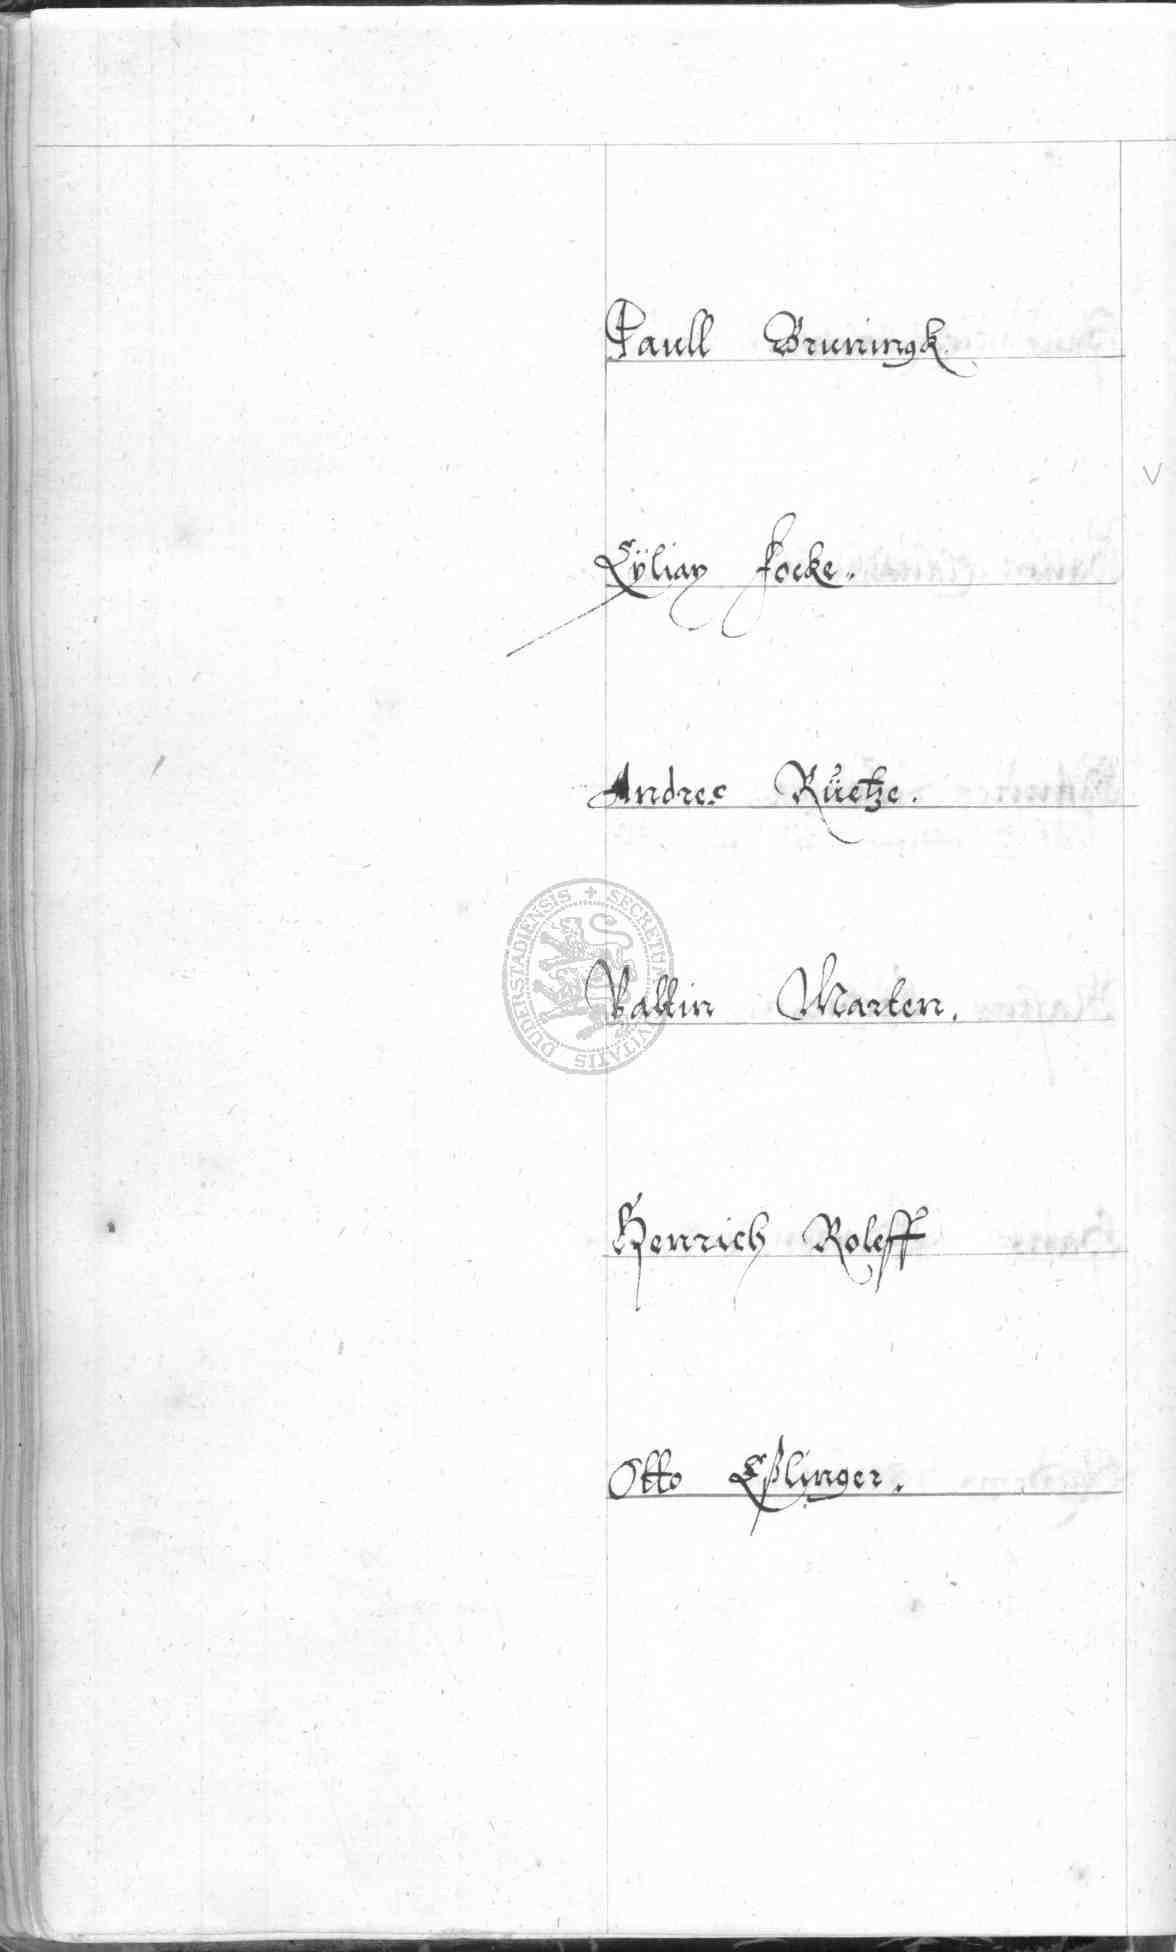 Paull Bruningk
Cÿlian Focke.
Andres Rüetze.
Valtin Marten.
Henrich Roleff
Otto Eßlinger.
SECRETH CIVITATIS DUDERSTADIENSIS +